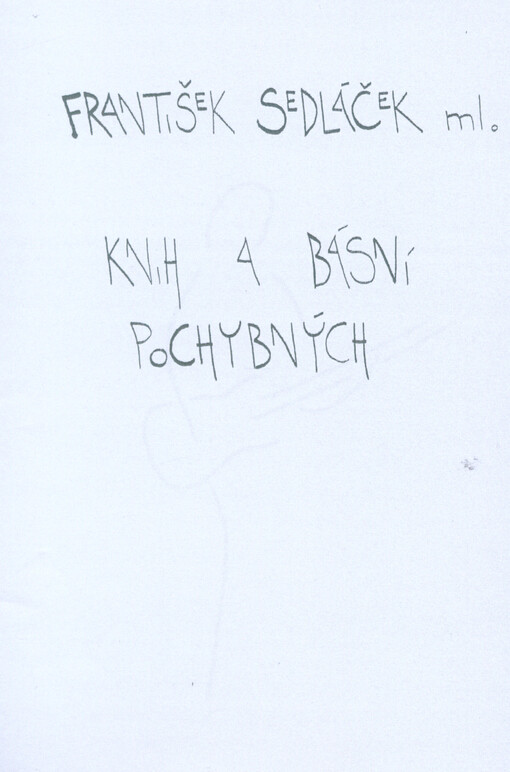 FRANTIŠEK SEDLÁČEK ml.
KNIH A BÁSNÍ
POCHYBNÝCH